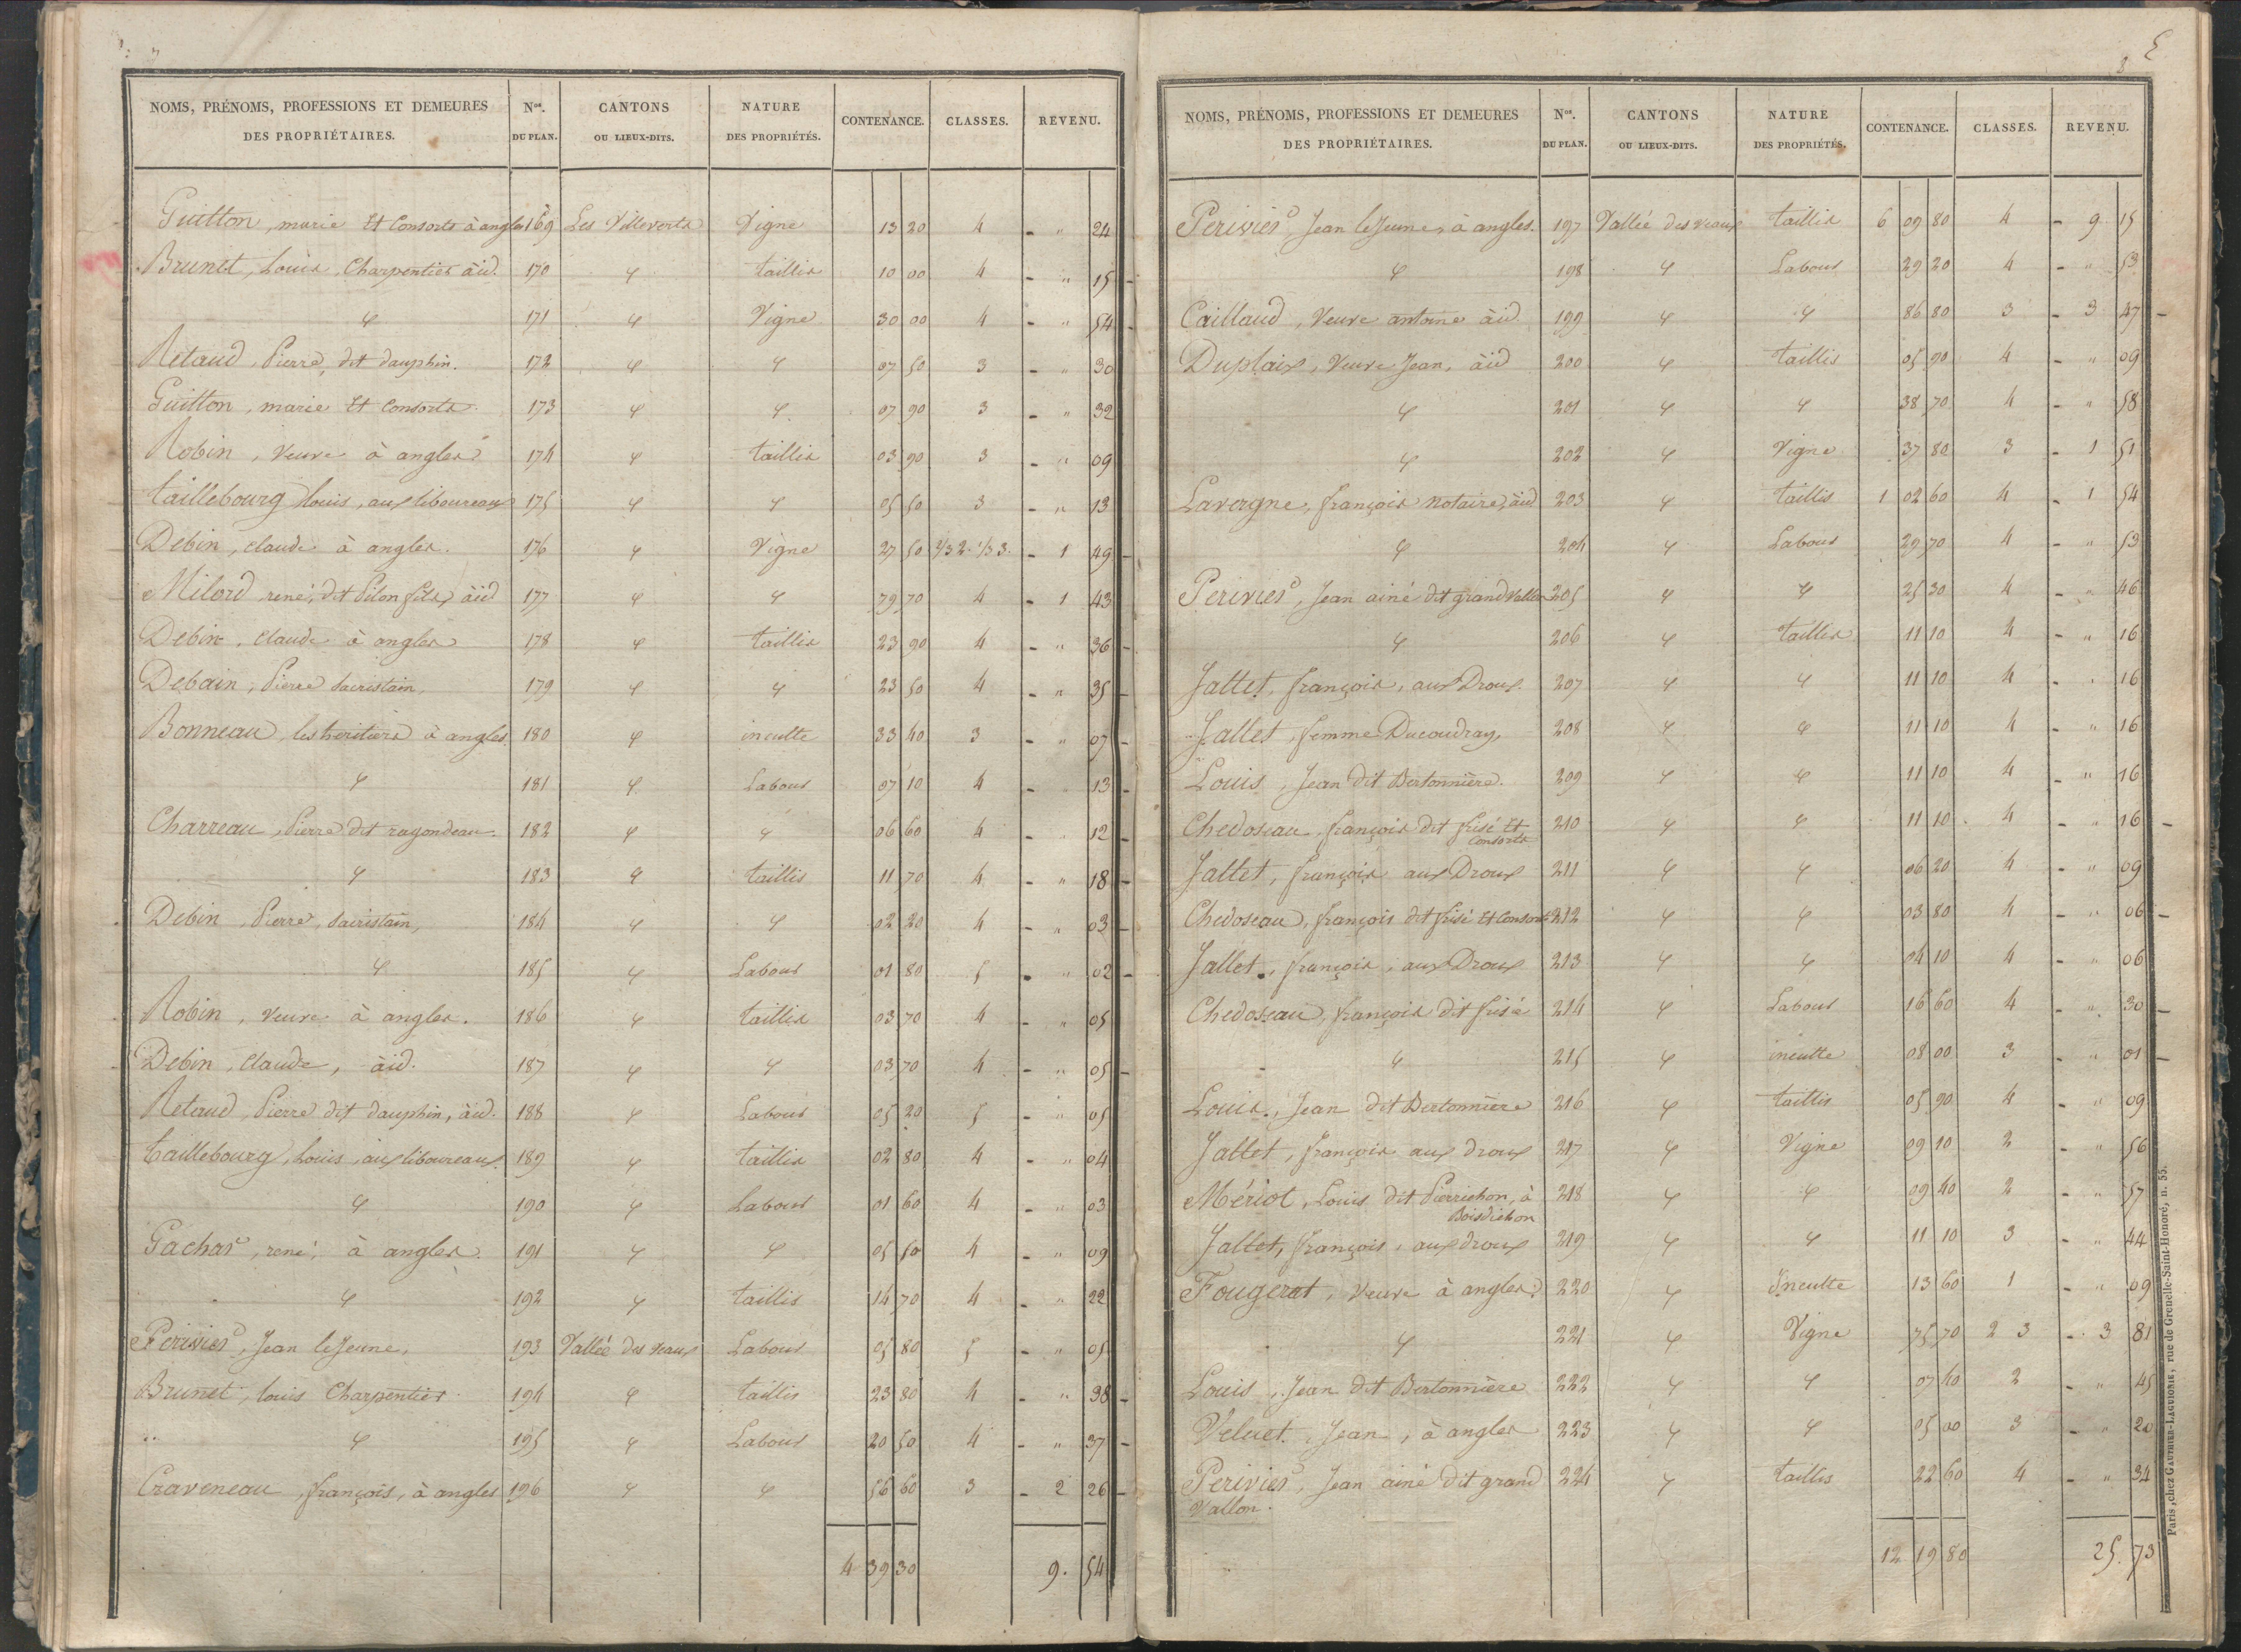 NOMS, PRÉNOMS, PROFESSIONS ET DEMEURES DES PROPRIÉTAIRES. Nos. DU PLAN. CANTONS OU LIEUX-DITS. NATURE DES PROPRIÉTÉS. CONTENANCE. CLASSES. REVENU.
Guitton, marie Et Consorts à angles 169 Les Villeverts Vigne 13 20 4 - " 24
Brunet, Louis, Charpentier àid. 170 φ taillis 10 00 4 - " 15 -
φ 171 φ Vigne 30 00 4 - " 54 -
Retaud, Pierre, dit dauphin. 172 φ φ 07 50 3 - " 30
Guitton, marie Et Consorts. 173 φ φ 07 90 3 - " 32
Robin, veuve à angles. 174 φ taillis 03 90 3 - " 09
taillebourg Louis, aux liboureaux 175 φ φ 05 50 3 - " 13
Debin, claude à angles. 176 φ Vigne 27 50 2/3 2. 1/3 3. - 1 49 -
Milord rené, dit Pilon fils, àid 177 φ φ 79 70 4 - 1 43
Debin, claude à angles 178 φ taillis 23 90 4 - " 36 -
Debain, Pierre sacristain, 179 φ φ 23 50 4 - " 35 -
Bonneau, les heritiers à angles. 180 φ inculte 33 40 3 - " 07 -
φ 181 φ Labour 07 10 4 - " 13 -
Charreau, Pierre dit ragondeau. 182 φ φ 06 60 4 - " 12 -
φ 183 φ taillis 11 70 4 - " 18 -
Debin, Pierre, sacristain, 184 φ φ 02 20 4 - " 03 -
φ 185 φ Labour 01 80 5 - " 02 -
Robin, veuve à angles. 186 φ taillis 03 70 4 - " 05
Debin, claude, àid. 187 φ φ 03 70 4 - " 05 -
Retaud, Pierre dit dauphin, àid. 188 φ Labour 05 20 5 - " 05
taillebourg, Louis, aux liboureaux. 189 φ taillis 02 80 4 - " 04
φ 190 φ Labour 01 60 4 - " 03
Gachar, rené, à angles. 191 φ φ 05 50 4 - " 09
φ 192 φ taillis 14 70 4 - " 22
Perivier, Jean le Jeune, 193 Vallée des veaux Labour 05 80 5 - " 05
Brunet, louis Charpentier. 194 φ taillis 23 80 4 - " 38 -
φ 195 φ Labour 20 50 4 - " 37 -
Craveneau, françois, à angles 196 φ φ 56 60 3 - 2 26 -
4 39 30 9. 54
8
NOMS, PRÉNOMS, PROFESSIONS ET DEMEURES DES PROPRIÉTAIRES. Nos. DU PLAN. CANTONS OU LIEUX-DITS. NATURE DES PROPRIÉTÉS. CONTENANCE. CLASSES. REVENU.
Perivier, Jean le Jeune, à angles. 197 Vallée des veaux taillis 6 09 80 4 - 9 15
φ 198 φ Labour 29 20 4 - " 53
Caillaud, Veuve antoine àid. 199 φ φ 86 80 3 - 3 47 -
Duplaix, Veuve Jean, àid 200 φ taillis 05 90 4 - " 09
φ 201 φ φ 38 70 4 - " 58
φ 202 φ Vigne 37 80 3 - 1 51
Lavergne, françois notaire, àid 203 φ taillis 1 02 60 4 - 1 54
φ 204 φ Labour 29 70 4 - " 53
Perivier, Jean ainé dit grand Vallon 205 φ φ 25 30 4 - " 46
φ 206 φ taillis 11 10 4 - " 16
Jallet, françois, aux Droux. 207 φ φ 11 10 4 - " 16
Jallet, femme Ducoudray, 208 φ φ 11 10 4 - " 16
Louis, Jean dit Bertonnière. 209 φ φ 11 10 4 - " 16
Chedoseau, françois dit frisé Et Consorts 210 φ φ 11 10 4 - " 16 -
Jallet, françois aux Droux 211 φ φ 06 20 4 - " 09
Chedoseau, françois dit frisé Et Consorts 212 φ φ 03 80 4 - " 06 -
Jallet, françois, aux Droux 213 φ φ 04 10 4 - " 06
Chedoseau, françois dit frisé 214 φ Labour 16 60 4 - " 30 -
φ 215 φ inculte 08 00 3 - " 01 -
Louis, Jean dit Bertonnière 216 φ taillis 05 90 4 - " 09
Jallet, françois aux droux 217 φ Vigne 09 10 2 - " 56
Mériot, Louis dit Pierrichon, à Boisdichon 218 φ φ 09 40 2 - " 57
Jallet, françois, aux droux 219 φ φ 11 10 3 - " 44
Fougerat, veuve à angles. 220 φ Inculte 13 60 1 - " 09
φ 221 φ Vigne 75 70 2 3 - 3 81
Louis, Jean dit Bertonnière 222 φ φ 07 40 2 - " 45
Veluet, Jean, à angles 223 φ φ 05 00 3 - " 20
Perivier, Jean ainé dit grand 224 φ taillis 22 60 4 - " 34
Vallon.
12 19 80 25. 73
Paris, chez GAUTHIER-LAGUIONIE, rue de Grenelle-Saint-Honoré, n. 55.